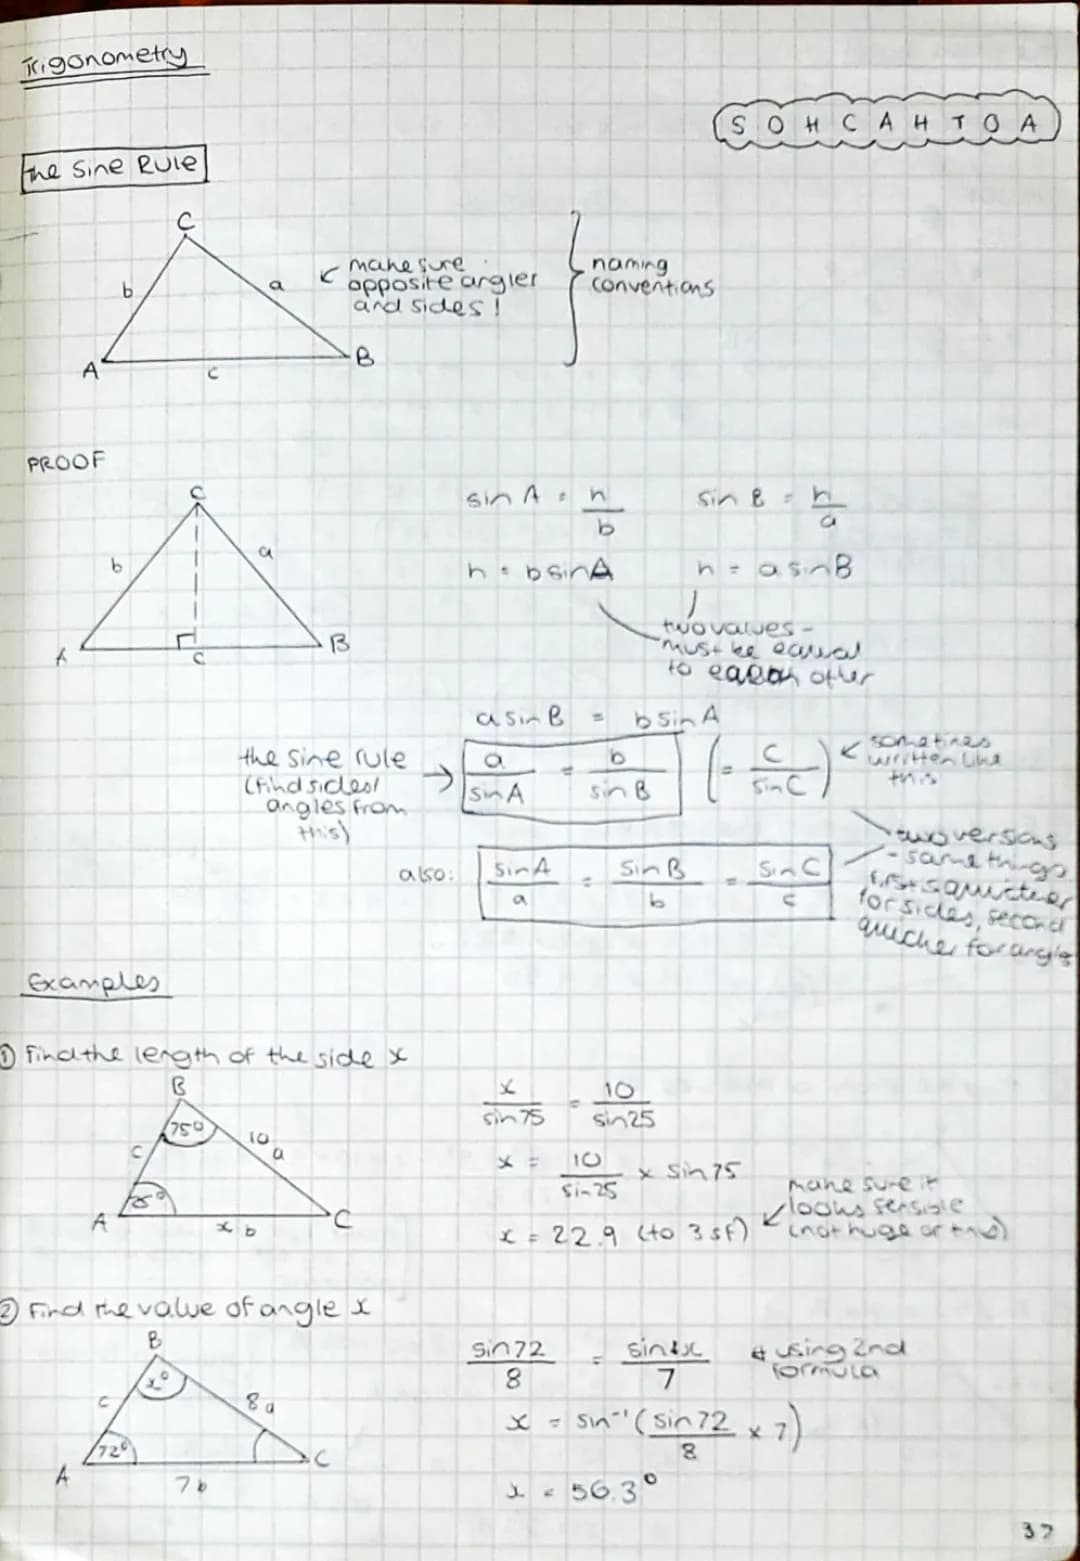 Trigonometry
SOHCAHTOA
The Sine Rule
C
b
a
A
c
B
make sure
opposite angles
and sides!
naming
conventions
PROOF
C
b
a
A
c
B
sin A = h/b
sin B = h/a
h = bsinA
h = asinB
two values -
must be equal
to each other
asinB = bsinA
the sine rule
(find sides/
angles from
this)
a/sinA = b/sinB (= c/sinC)
sometimes
written like
this
also: sinA/a = sinB/b = sinC/c
two versions
- same things
first quicker
for sides, second
quicker for angles
Examples
① Find the length of the side x
B
75°
10
a
c
A
x b
C
x/sin75 = 10/sin25
x = 10/sin25 × sin75
x = 22.9 (to 3sf)
make sure it
looks sensible
(not huge or tiny)
② Find the value of angle x
B
x°
c
8a
72°
A
7b
C
sin72/8 = sinx/7
using 2nd
formula
x = sin⁻¹(sin72/8 × 7)
x = 56.3°
37